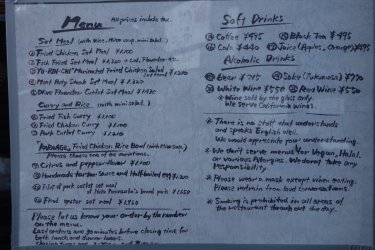 Menu All prices include tax.
Set Meal (with Rice, Miso soup, mini salad.)
Fried Chicken Set Meal ¥1100
Fried Food Set Meal ¥1320
Marinated Fried Chicken Salad
Set Meal
Set Meal ¥1210
Cutlet Set Meal
Curry and Rice (with mini salad.)
Fried Fish Curry ¥1100
Fried Chicken Curry ¥1100
Pork Cutlet Curry ¥1210
Fried Chicken Rice Bowl (with Miso soup)
Please choose one of the variations.
Citrus and pepper
Handmade tartar Sauce and Half-boiled egg
Fillet of pork cutlet set meal
brand pork ¥1650
Fried oyster set meal
Please let us know your order by the number
on the menu.
Last orders are 30 minutes before closing time for
both lunch and dinner hours.
Soft Drinks
Coffee ¥495 Black Tea ¥495
Cola ¥440 Juice (Apple, Orange) ¥495
Alcoholic Drinks
Beer ¥715 Sake
White Wine ¥550 Red Wine ¥550
* Wine sold by the glass only.
We serve California wines.
* There is no staff that understands
and speaks English well.
We would appreciate your understanding.
* We don't serve menus for Vegan, Halal,
or various Allergies. We do not take any
responsibility.
* Please wear a mask except when eating.
Please refrain from loud conversations.
* Smoking is prohibited in all areas of
the restaurant throughout the day.